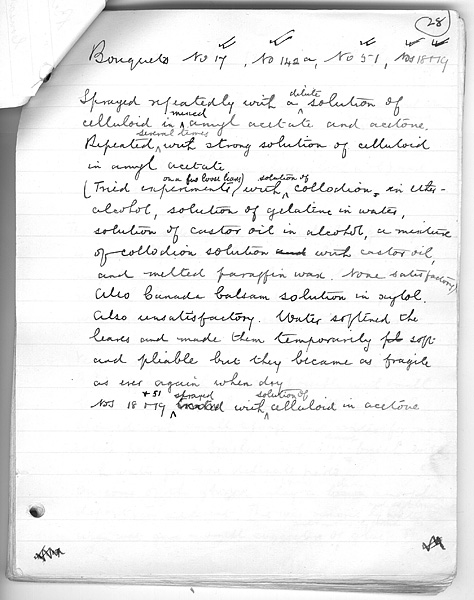 28
Bouquets No 17, No 142a, No 51, Nos 18+19
Sprayed repeatedly with a dilute solution of
celluloid in mixed amyl acetate and acetone.
Repeated several times with strong solution of celluloid
in amyl acetate
(Tried experiments (on a few loose leaves) with solution of collodion in ether-
alcohol, solution of gelatine in water,
solution of castor oil in alcohol, a mixture
of collodion solution with castor oil,
and melted paraffin wax. None satisfactory)
Also Canada balsam solution in xylol.
Also unsatisfactory. Water softened the
leaves and made them temporarily soft
and pliable but they became as fragile
as ever again when dry
Nos 18+19 + 51 sprayed with solution of celluloid in acetone